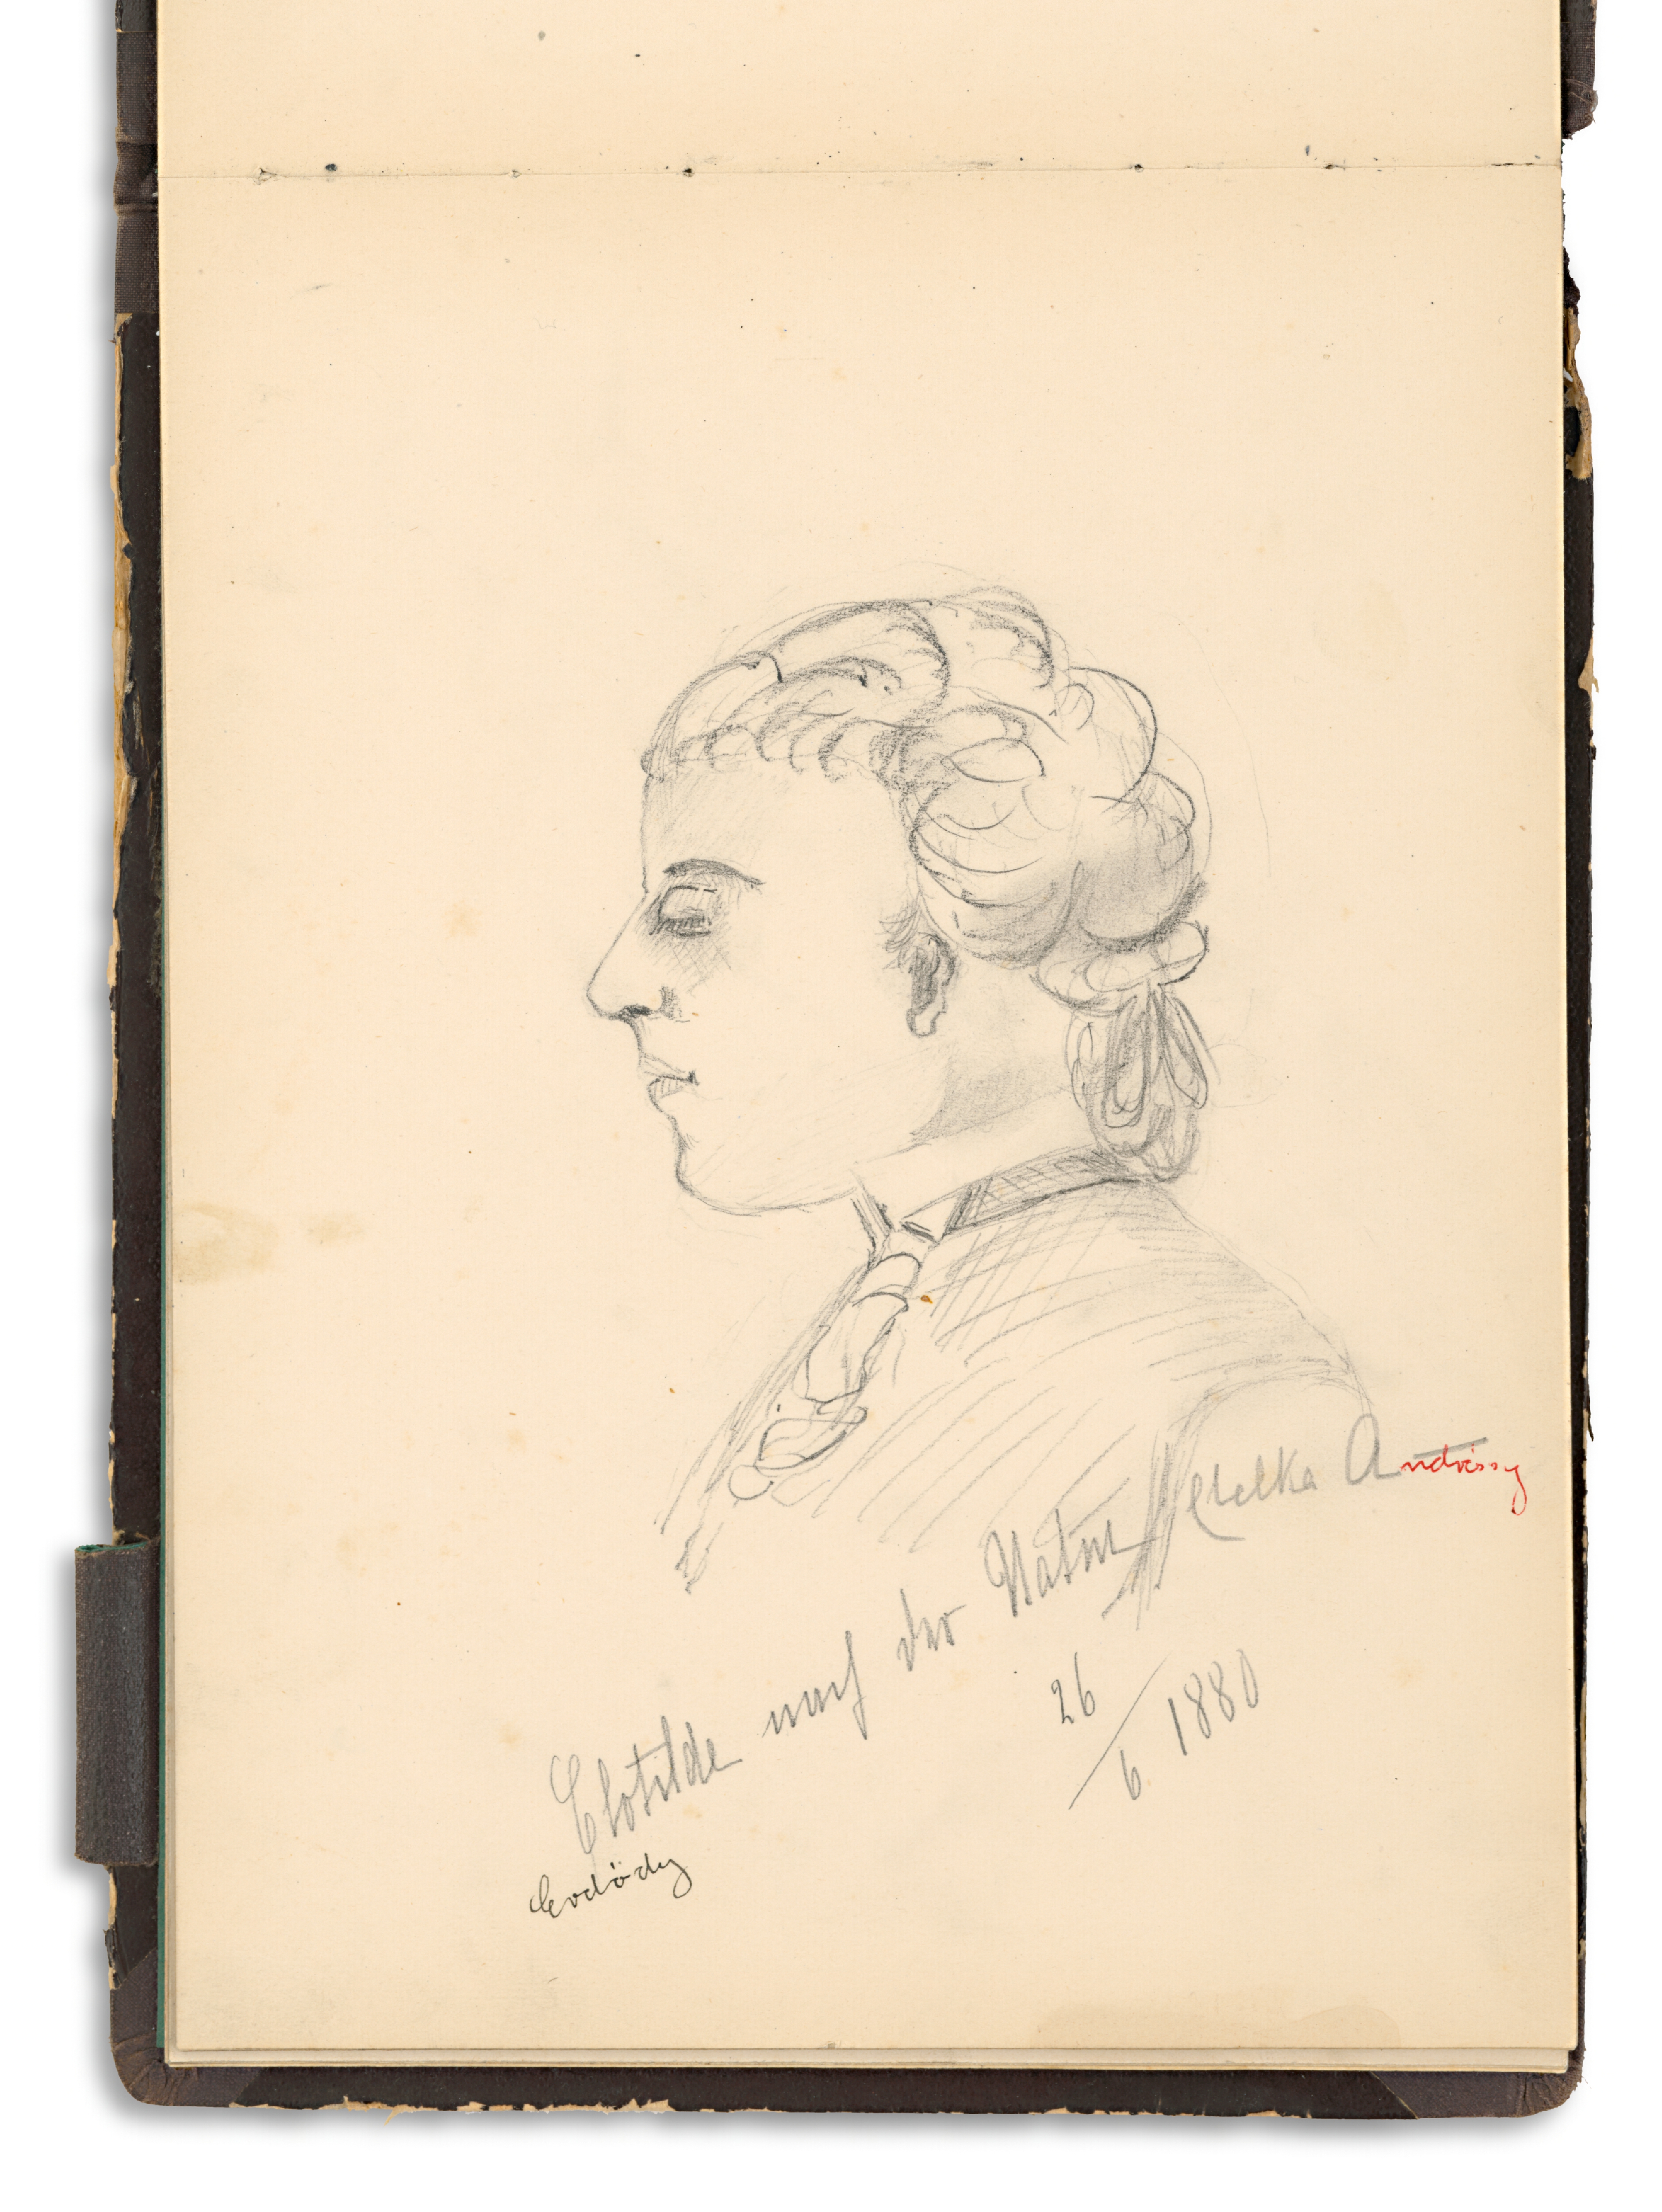 Clotilde nach der Natur Etelka Andrássy
26/6 1880
Erdödy